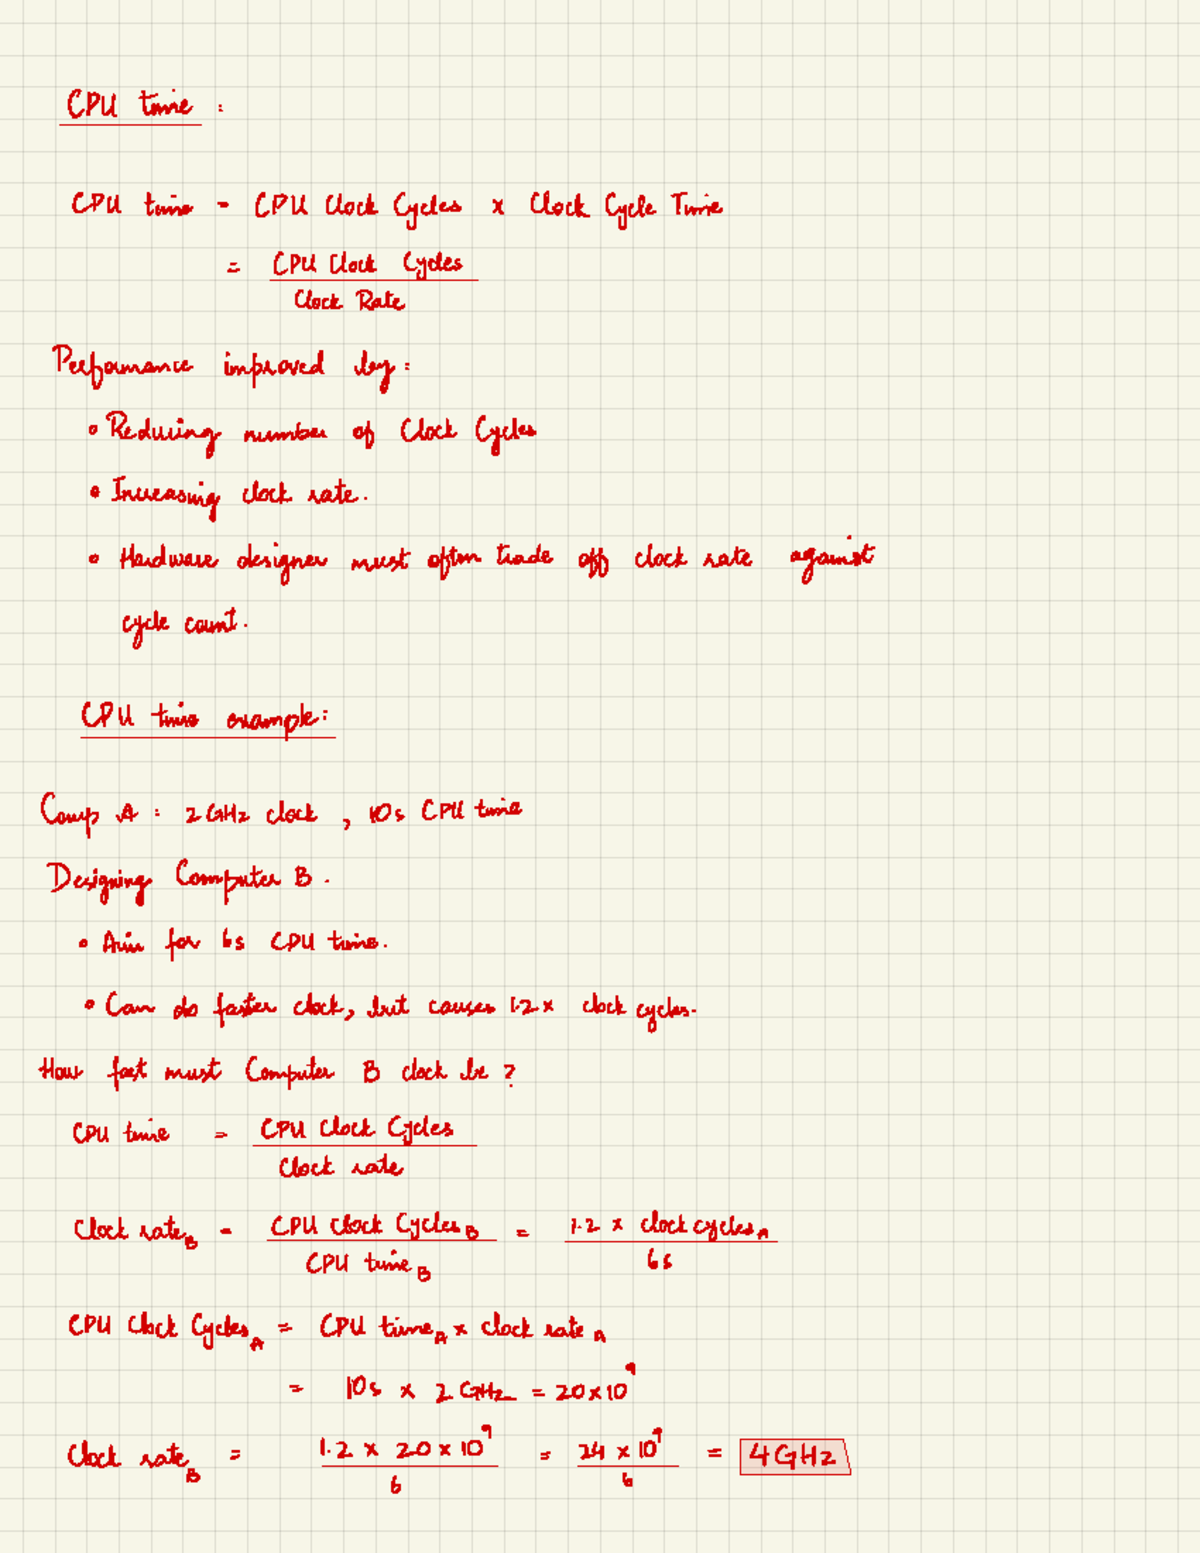 CPU time :
CPU time = CPU Clock Cycles x Clock Cycle Time
= CPU Clock Cycles
Clock Rate
Performance improved by :
• Reducing number of Clock Cycles
• Increasing clock rate.
• Hardware designer must often trade off clock rate against
cycle count.
CPU time example :
Comp A : 2 GHz clock , 10s CPU time
Designing Computer B .
• Aim for 6s CPU time.
• Can do faster clock, but causes 1.2 x clock cycles.
How fast must Computer B clock be ?
CPU time = CPU Clock Cycles
Clock rate
Clock rate B = CPU Clock Cycles B = 1.2 x clock cycles A
CPU time B 6s
CPU Clock Cycles A = CPU time A x clock rate A
= 10s x 2 GHz = 20 x 10⁹
Clock rate B = 1.2 x 20 x 10⁹ = 24 x 10⁹ = 4 GHz
6 6